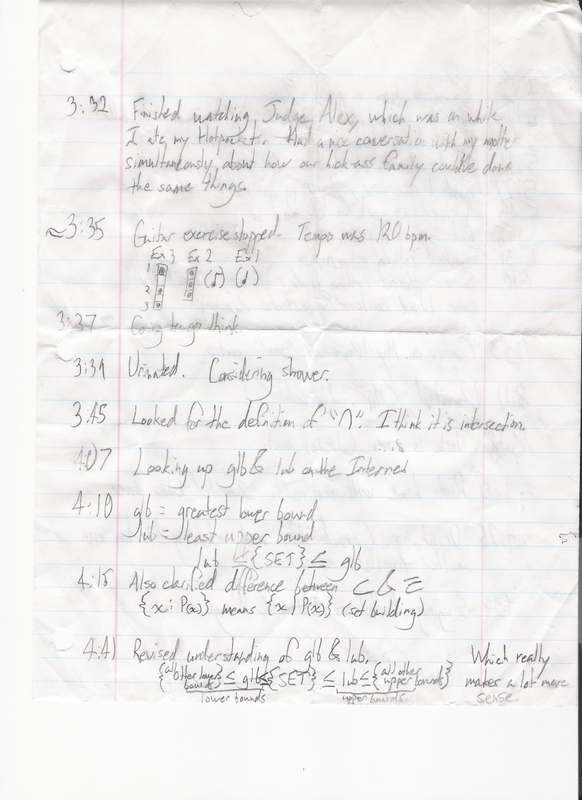 3:32 Finished watching Judge Alex, which was on while
I ate my Hotpocket. Had a nice conversation with my mother
simultaneously, about how our kick-ass family could've done
the same things.
~3:35 Guitar exercise stopped. Tempo was 120 bpm.
Ex 3 Ex 2 Ex 1
1 (♪) (♩)
2
3
3:37 Going to go think
3:39 Urinated. Considering shower.
3:45 Looked for the definition of "∩". I think it is intersection.
4:07 Looking up glb & lub on the Internet
4:10 glb = greatest lower bound
lub = least upper bound
lub ≤ {SET} ≤ glb
4:15 Also clarified difference between ⊂ &
{x : P(x)} means {x | P(x)} (set building)
4:41 Revised understanding of glb & lub. Which really
{all other lower bounds} ≤ glb ≤ {SET} ≤ lub ≤ {all other upper bounds} makes a lot more
lower bounds upper bounds sense.